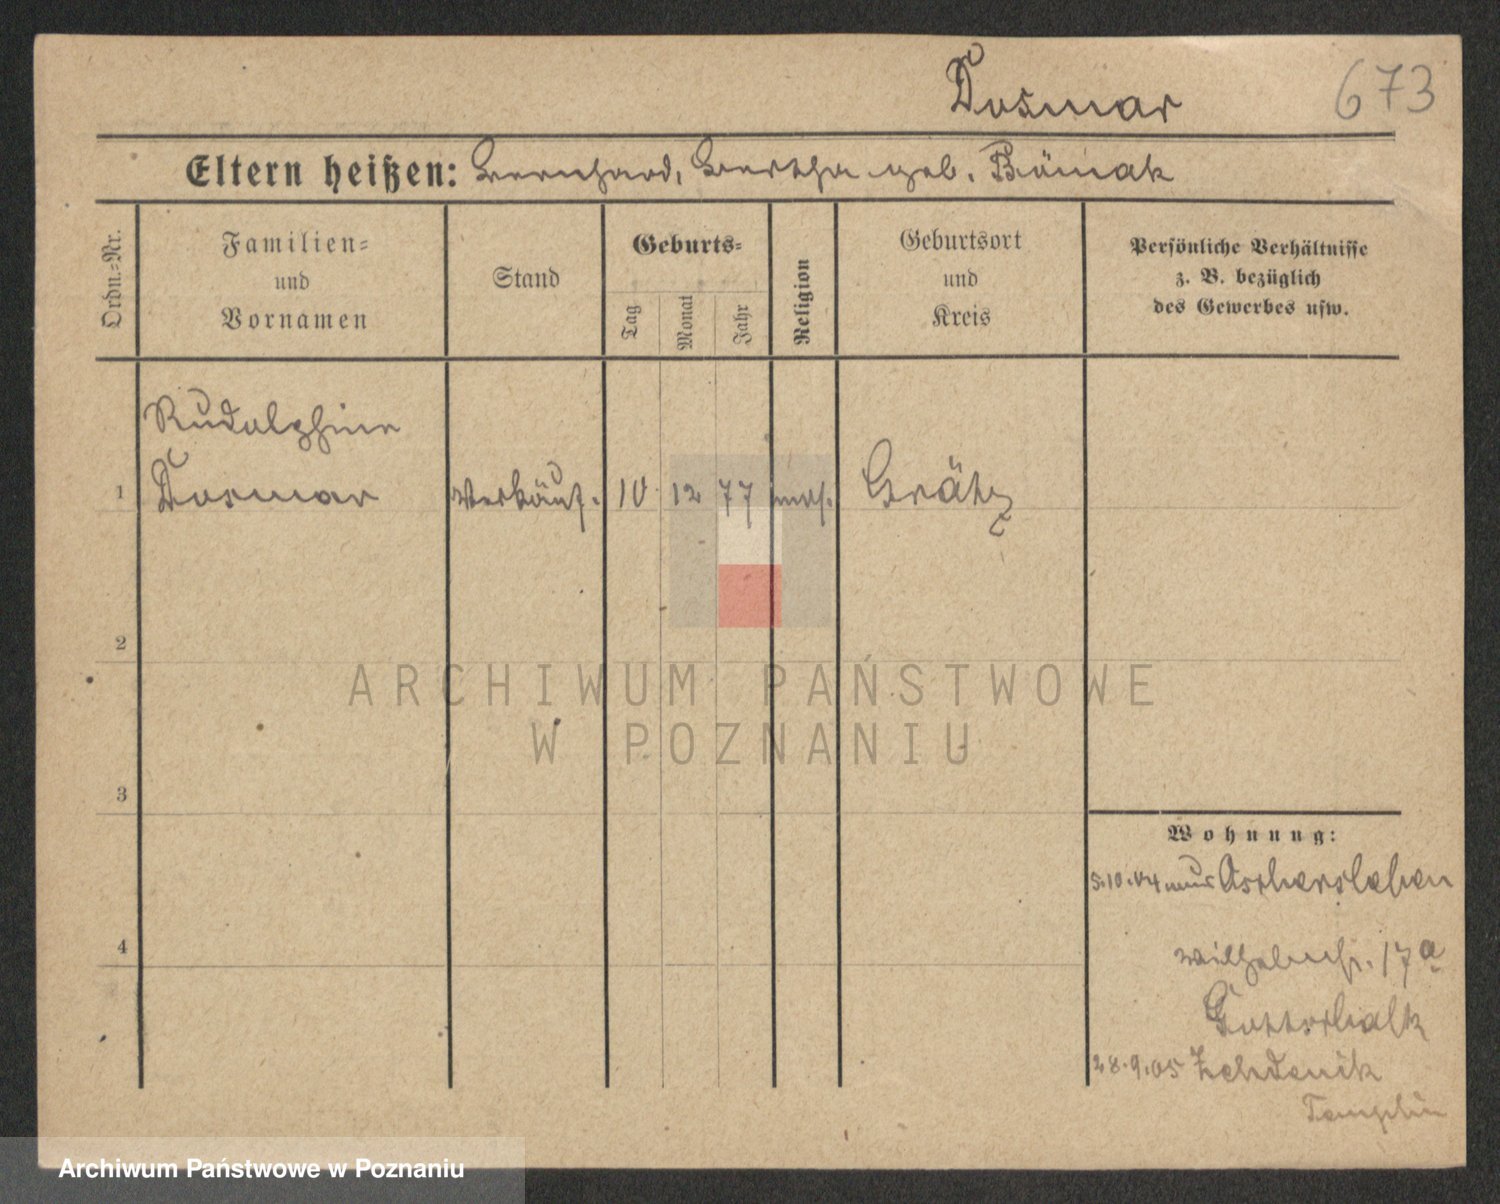 Dosmar
673
Eltern heißen: Bernhard, Bertha geb.
Ordn.=Nr.
Familien=
und
Vornamen
Stand
Geburts=
Tag
Monat
Jahr
Religion
Geburtsort
und
Kreis
Persönliche Verhältnisse
z. B. bezüglich
des Gewerbes usw.
Rudolphine
1 Dosmar Verkäuf. 10 12 77 mos. Grätz
2
ARCHIWUM PAŃSTWOWE
W POZNANIU
3
4
Wohnung:
5.10.04 aus Aschersleben
Wilhelmstr. 17a
Gottschalk
28.9.05 Zehdenik
Templin
Archiwum Państwowe w Poznaniu